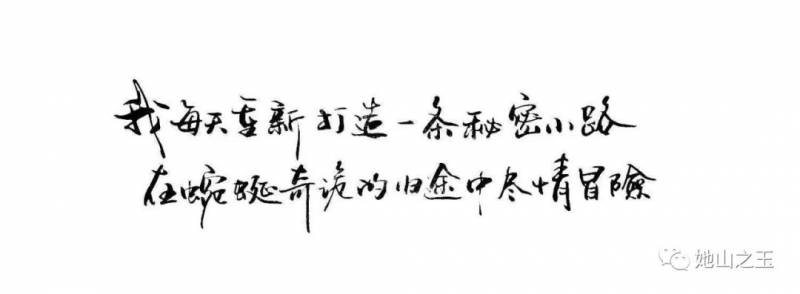 我每天重新打造一条秘密小路
在蜿蜒奇诡的归途中尽情冒險
她山之玉